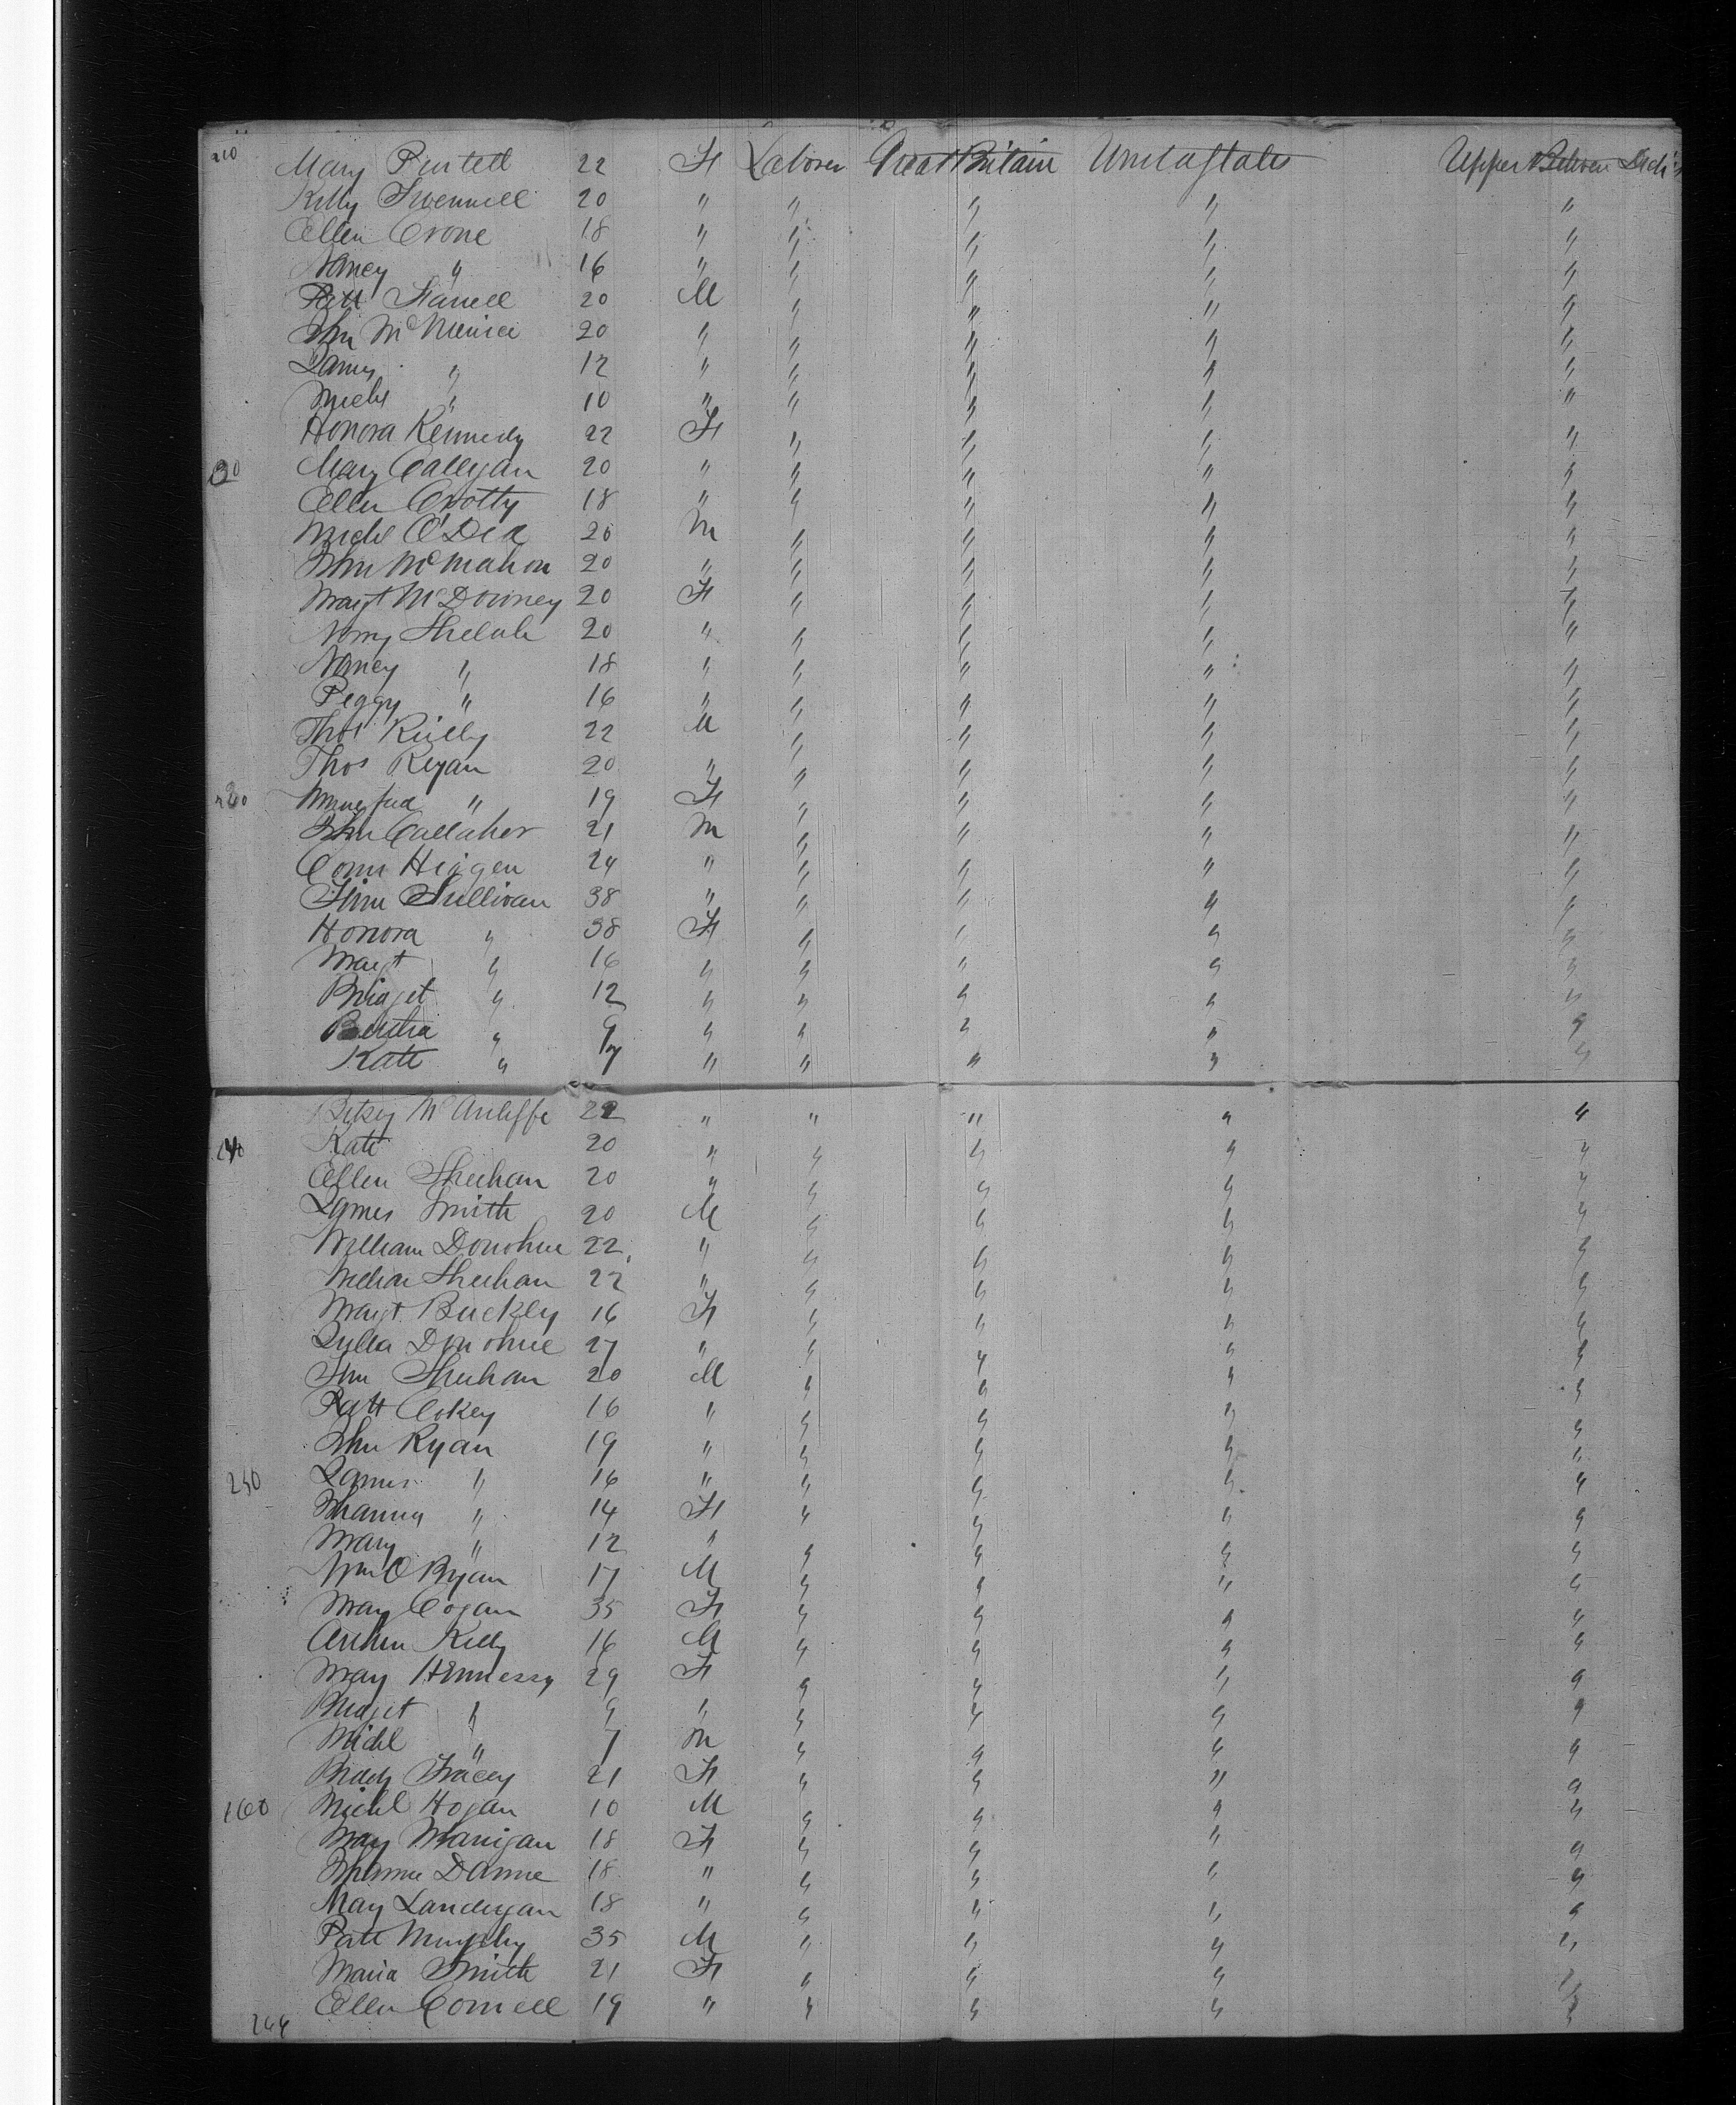 210 Mary Purtell 22 F Laborer Great Britain United States Upper Between Decks
Kelly 20 " " " " "
Ellen Crone 18 " " " " "
Nancy " 16 " " " " "
Patt 20 M " " " "
Jhn Mc 20 " " " " "
James " 12 " " " " "
Michl " 10 " " " " "
Honora Kennedy 22 F " " " "
20 Mary Callyan 20 " " " " "
Ellen Crotty 18 " " " " "
Michl O'Dea 20 M " " " "
John McMahon 20 " " " " "
Margt McDowney 20 F " " " "
20 " " " " "
Nancy " 18 " " " " "
Peggy " 16 " " " " "
Thos Rielly 22 M " " " "
Thos Regan 20 " " " " "
230 " 19 F " " " "
John Callaher 21 M " " " "
Conn Higgen 24 " " " " "
Sullivan 38 " " " " "
Honora " 38 F " " " "
Margt " 16 " " " " "
Bridget " 12 " " " " "
" 9 " " " " "
Kate " 7 " " " " "
Betsey McAuliffe 22 " " " " "
40 Kate 20 " " " " "
Ellen Sheehan 20 " " " " "
James Smith 20 M " " " "
William Donohue 22 " " " " "
Sheehan 22 " " " " "
Margt Buckley 16 F " " " "
Donohue 27 " " " " "
Sheehan 20 M " " " "
Patt Cokey 16 " " " " "
Jhn Ryan 19 " " " " "
250 James " 16 " " " " "
" 14 F " " " "
Mary " 12 " " " " "
Wm O Ryan 17 M " " " "
Mary Cogan 35 F " " " "
Arthur Kelly 16 M " " " "
Mary Hennessy 29 F " " " "
Bridget " 9 " " " " "
Michl " 7 M " " " "
Biddy Tracey 21 F " " " "
160 Michl Hogan 10 M " " " "
Mary 18 F " " " "
18 " " " " "
Mary Landegan 18 " " " " "
Patt Murphy 35 M " " " "
Maria Smith 21 F " " " "
Ellen Connell 19 " " " " "
266